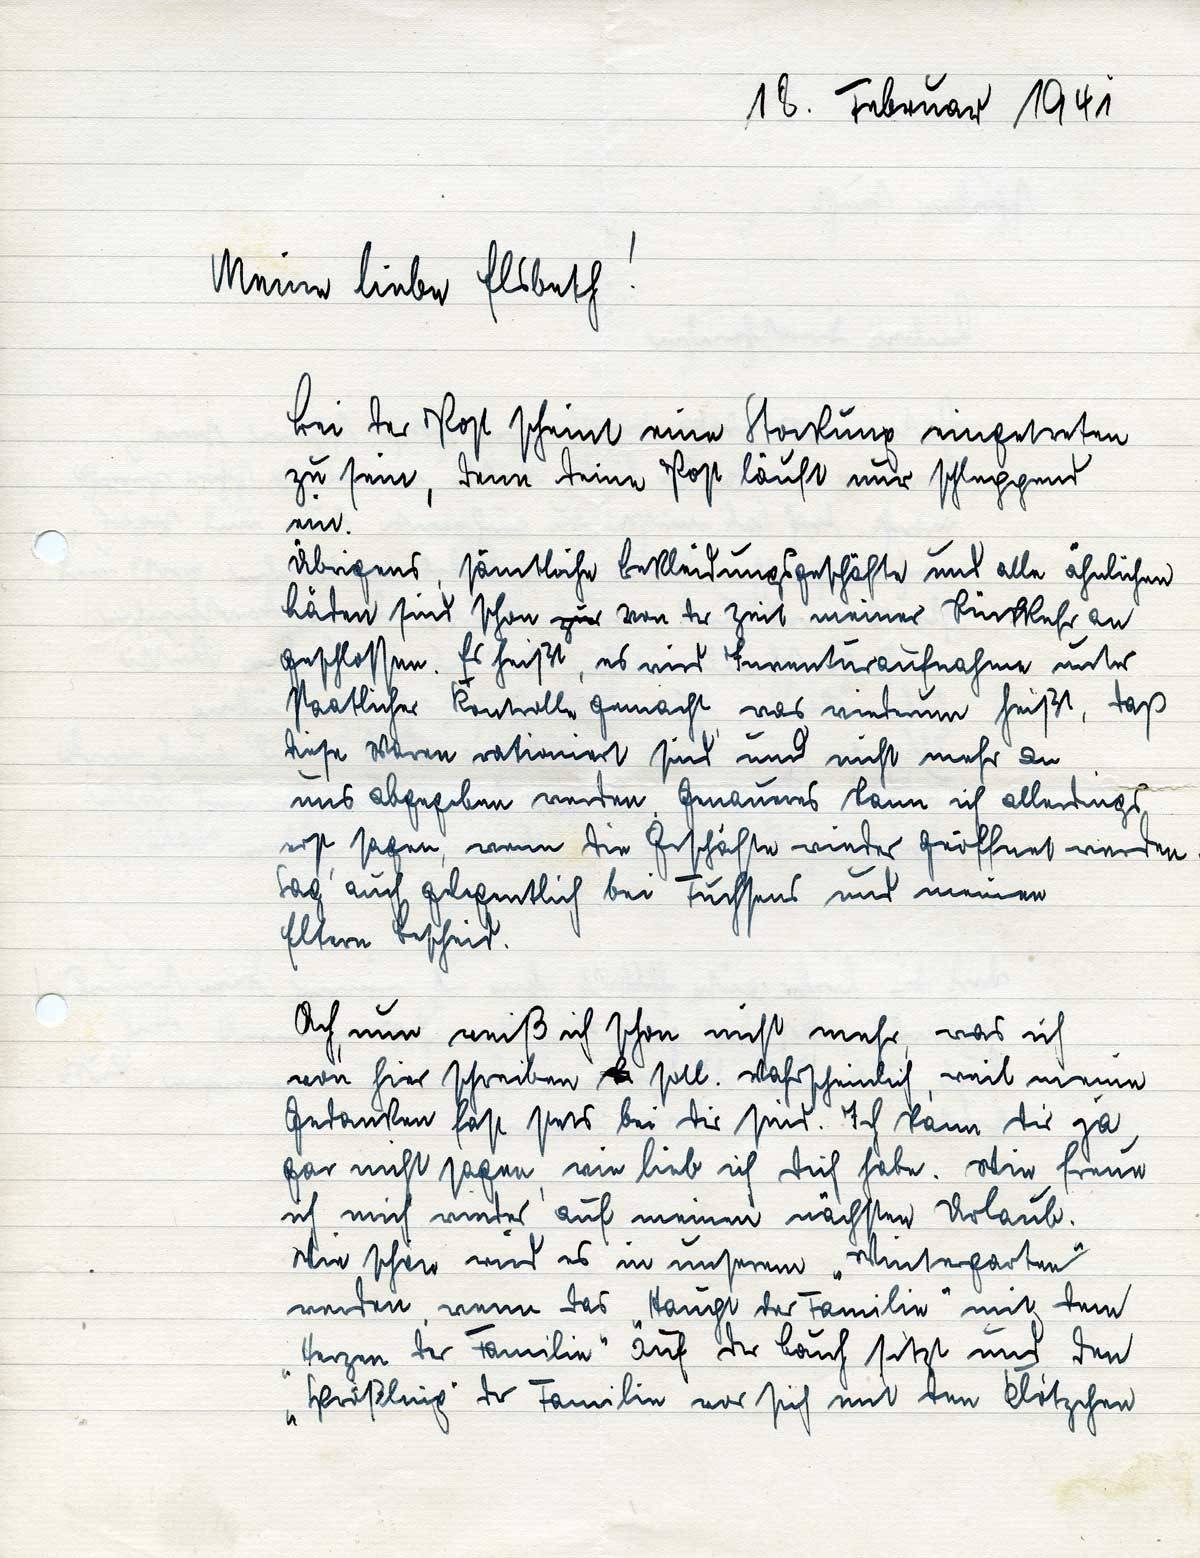 18. Februar 1941
Meine liebe Elsbeth!
Bei der Post scheint eine Stockung eingetreten
zu sein, denn deine Post läuft nur schleppend
ein.
Übrigens, sämtliche Bekleidungsgeschäfte und alle ähnlichen
Läden sind schon zur von der Zeit meiner Rückkehr an
geschlossen. Es heißt, es wird Inventuraufnahme unter
Staatlicher Kontrolle gemacht, was wiederum heißt, daß
diese Waren rationiert sind und nicht mehr an
uns abgegeben werden. Genaueres kann ich allerdings
erst sagen, wenn die Geschäfte wieder geöffnet werden.
Sag' auch gelegentlich bei Fuchsens und meinen
Eltern Bescheid.
Ach, nun weiß ich schon nicht mehr, was ich
von hier schreiben soll. Wahrscheinlich, weil meine
Gedanken fast stets bei dir sind. Ich kann dir ja
gar nicht sagen, wie lieb ich dich habe. Wie freue
ich mich wieder auf meinen nächsten Urlaub.
Wie schön wird es in unserem „Wintergarten“
werden, wenn das „Haupt der Familie“ mit dem
„Herzen der Familie“ auf der Couch sitzt und den
„Sprößling“ der Familie vor sich mit den Klötzchen